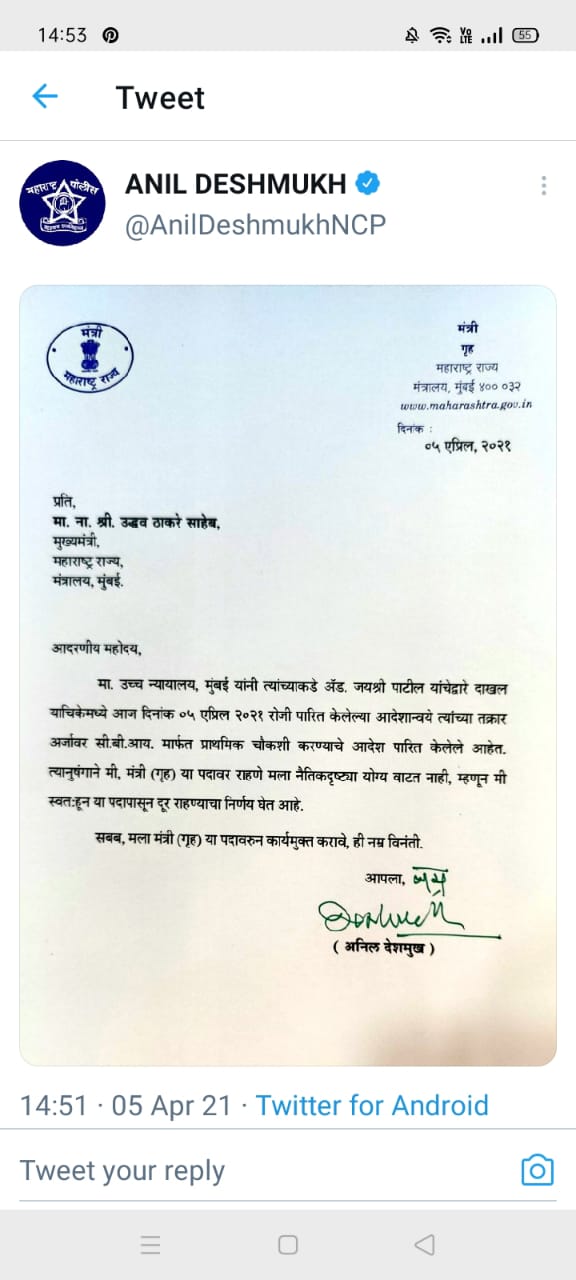 14:53
VO
LTE
55
Tweet
महाराष्ट्र पोलीस
ANIL DESHMUKH
@AnilDeshmukhNCP
मंत्री
महाराष्ट्र राज्य
मंत्री
गृह
महाराष्ट्र राज्य
मंत्रालय, मुंबई ४०० ०३२
www.maharashtra.gov.in
दिनांक :
०५ एप्रिल, २०२१
प्रति,
मा. ना. श्री. उद्धव ठाकरे साहेब,
मुख्यमंत्री,
महाराष्ट्र राज्य,
मंत्रालय, मुंबई.
आदरणीय महोदय,
मा. उच्च न्यायालय, मुंबई यांनी त्यांच्याकडे ॲड. जयश्री पाटील यांचेद्वारे दाखल
याचिकेमध्ये आज दिनांक ०५ एप्रिल २०२१ रोजी पारित केलेल्या आदेशान्वये त्यांच्या तक्रार
अर्जावर सी.बी.आय. मार्फत प्राथमिक चौकशी करण्याचे आदेश पारित केलेले आहेत.
त्यानुषंगाने मी, मंत्री (गृह) या पदावर राहणे मला नैतिकदृष्ट्या योग्य वाटत नाही, म्हणून मी
स्वत:हून या पदापासून दूर राहण्याचा निर्णय घेत आहे.
सबब, मला मंत्री (गृह) या पदावरुन कार्यमुक्त करावे, ही नम्र विनंती.
आपला,
( अनिल देशमुख )
14:51 · 05 Apr 21 · Twitter for Android
Tweet your reply